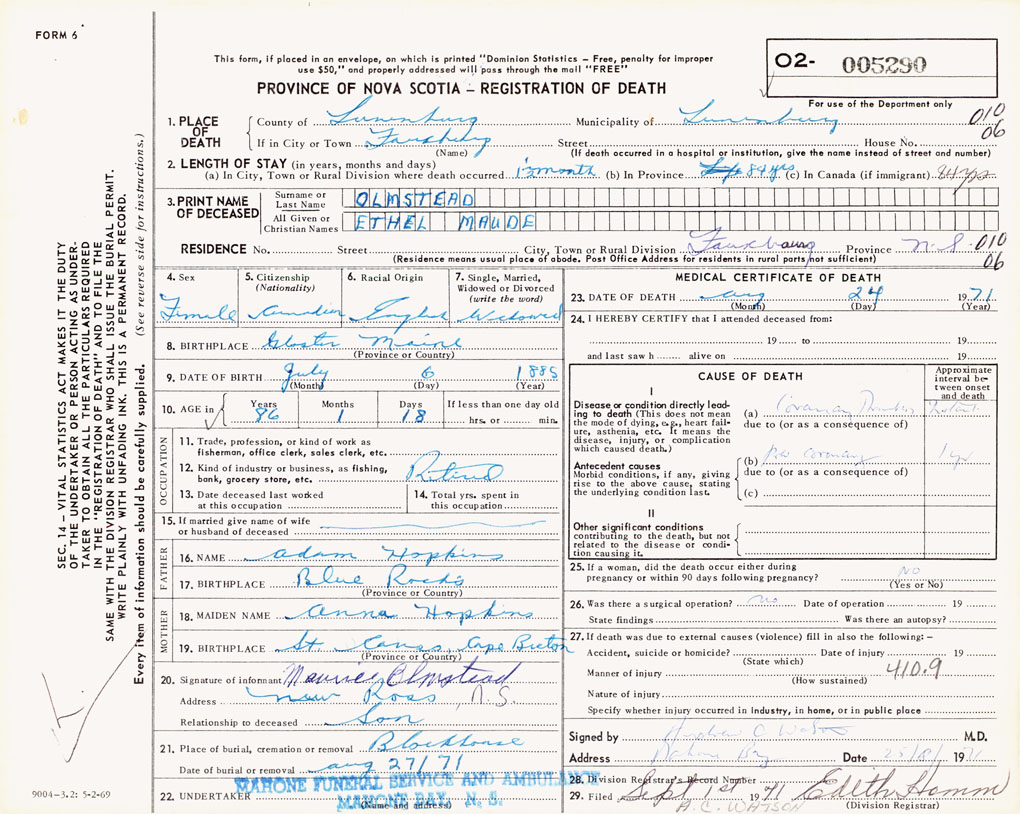 FORM 6
This form, if placed in an envelope, on which is printed "Dominion Statistics – Free, penalty for improper
use $50," and properly addressed will pass through the mail "FREE"
PROVINCE OF NOVA SCOTIA – REGISTRATION OF DEATH
O2- 005290
For use of the Department only
1. PLACE OF DEATH
County of Lunenburg Municipality of Lunenburg 010
If in City or Town Fauxburg Street House No. 06
(Name) (If death occurred in a hospital or institution, give the name instead of street and number)
2. LENGTH OF STAY (in years, months and days)
(a) In City, Town or Rural Division where death occurred (b) In Province 84 yrs (c) In Canada (if immigrant) 84 yrs
3. PRINT NAME OF DECEASED
Surname or Last Name OLMSTEAD
All Given or Christian Names ETHEL MAUDE
RESIDENCE No. Street City, Town or Rural Division Fauxbourg Province N.S. 010
(Residence means usual place of abode. Post Office Address for residents in rural parts not sufficient) 06
4. Sex Female
5. Citizenship (Nationality) Canadian
6. Racial Origin English
7. Single, Married, Widowed or Divorced (write the word) Widowed
8. BIRTHPLACE Gloster Maine
(Province or Country)
9. DATE OF BIRTH July 6 1885
(Month) (Day) (Year)
10. AGE in Years 86 Months 1 Days 18 If less than one day old hrs. or min.
OCCUPATION
11. Trade, profession, or kind of work as
fisherman, office clerk, sales clerk, etc.
12. Kind of industry or business, as fishing,
bank, grocery store, etc. Retired
13. Date deceased last worked
at this occupation
14. Total yrs. spent in
this occupation
15. If married give name of wife
or husband of deceased
FATHER
16. NAME Adam Hopkins
17. BIRTHPLACE Blue Rocks
(Province or Country)
MOTHER
18. MAIDEN NAME Anna Hopkins
19. BIRTHPLACE St. Cape Breton
(Province or Country)
20. Signature of informant Maurice Olmstead
Address New Ross, N.S.
Relationship to deceased Son
21. Place of burial, cremation or removal Blockhouse
Date of burial or removal Aug 27/71
22. UNDERTAKER MAHONE FUNERAL SERVICE AND AMBULANCE
MAHONE BAY, N. S.
(Name and address)
MEDICAL CERTIFICATE OF DEATH
23. DATE OF DEATH Aug 24 1971
(Month) (Day) (Year)
24. I HEREBY CERTIFY that I attended deceased from:
19 to 19
and last saw h alive on 19
CAUSE OF DEATH
Approximate interval between onset and death
I
Disease or condition directly leading to death (This does not mean the mode of dying, e.g., heart failure, asthenia, etc. It means the disease, injury, or complication which caused death.)
(a) Coronary
due to (or as a consequence of)
Antecedent causes
Morbid conditions, if any, giving rise to the above cause, stating the underlying condition last.
(b) coronary 1 yr
due to (or as a consequence of)
(c)
II
Other significant conditions
contributing to the death, but not related to the disease or condition causing it.
25. If a woman, did the death occur either during
pregnancy or within 90 days following pregnancy? NO
(Yes or No)
26. Was there a surgical operation? no Date of operation 19
State findings Was there an autopsy?
27. If death was due to external causes (violence) fill in also the following: –
Accident, suicide or homicide? Date of injury 19
(State which)
Manner of injury 410.9
(How sustained)
Nature of injury
Specify whether injury occurred in industry, in home, or in public place
Signed by M.D.
Address Mahone Bay Date 1971
28. Division Registrar's Record Number
29. Filed Sept 1st 1971 Edith Hamm
A.C. WATSON (Division Registrar)
SEC. 14 – VITAL STATISTICS ACT MAKES IT THE DUTY
OF THE UNDERTAKER OR PERSON ACTING AS UNDER-
TAKER TO OBTAIN ALL THE PARTICULARS REQUIRED
IN THE "REGISTRATION OF DEATH" AND TO FILE THE
SAME WITH THE DIVISION REGISTRAR WHO SHALL ISSUE THE BURIAL PERMIT.
WRITE PLAINLY WITH UNFADING INK. THIS IS A PERMANENT RECORD.
Every item of information should be carefully supplied. (See reverse side for instructions.)
9004-3.2: 5-2-69